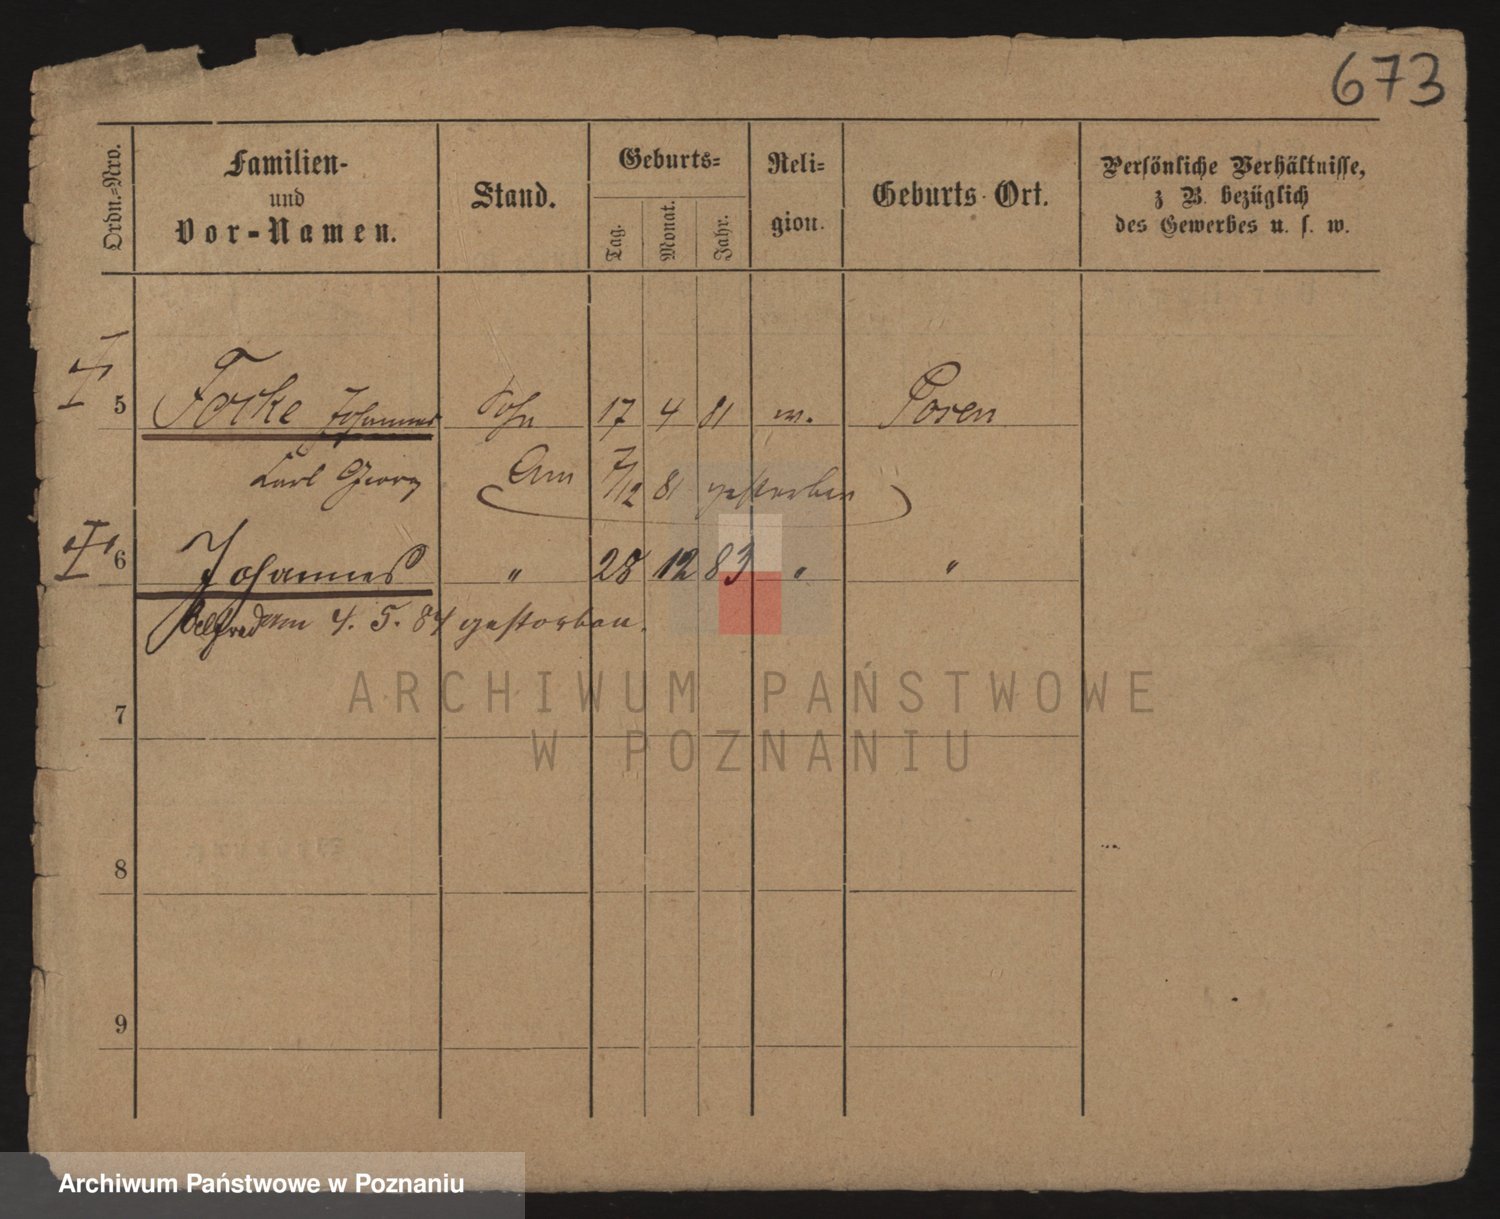 673
Ordn.-Nro.
Familien-
und
Vor-Namen.
Stand.
Geburts-
Tag.
Monat.
Jahr.
Reli-
gion.
Geburts-Ort.
Persönliche Verhältnisse,
z B. bezüglich
des Gewerbes u. s. w.
5 Focke Johannes Sohn 17 4 81 w. Posen
Karl Georg Am 7/12 81 gestorben
6 Johannes " 28 12 83 " "
Alfred am 4. 5. 84 gestorben.
ARCHIWUM PAŃSTWOWE
W POZNANIU
7
8
9
Archiwum Państwowe w Poznaniu